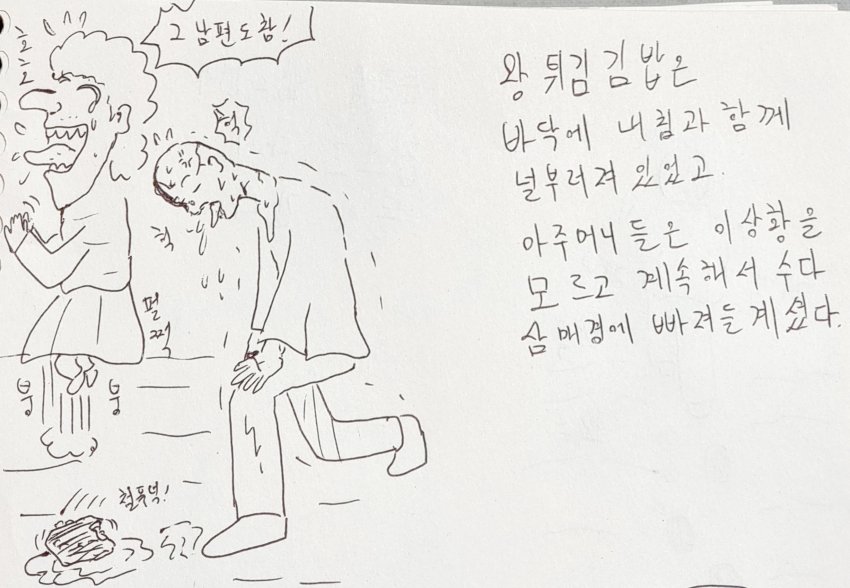 호호
그 남편도 참!
헉
헉
펄쩍
붕 붕
철푸덕!
왕 튀김 김밥은
바닥에 내침과 함께
널부러져 있었고.
아주머니들은 이상황을
모르고 계속해서 수다
삼매경에 빠져들계셨다.